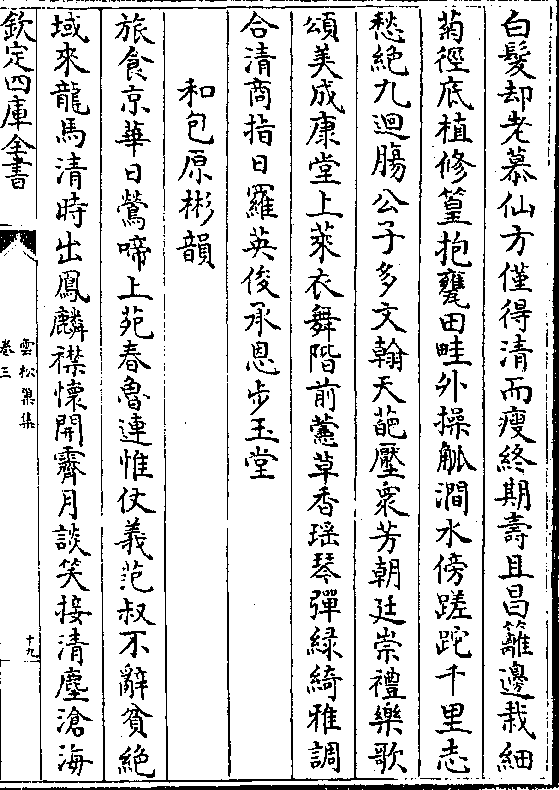 白髮却老慕仙方僅得清而瘦終期壽且昌籬邊栽細
菊徑底植修篁抱甕田畦外操觚澗水傍蹉跎千里志
愁絶九迴腸公子多文翰天葩壓衆芳朝廷崇禮樂歌
頌美成康堂上萊衣舞階前萱草香瑶琴彈緑綺雅調
合清商指日羅英俊承恩步玉堂
和包原彬韻
旅食京華日鶯啼上苑春魯連惟仗義范叔不辭貧絶
域來龍馬清時出鳳麟襟懷開霽月談笑接清塵滄海
欽定四庫全書
雲松巢集
卷三
十九